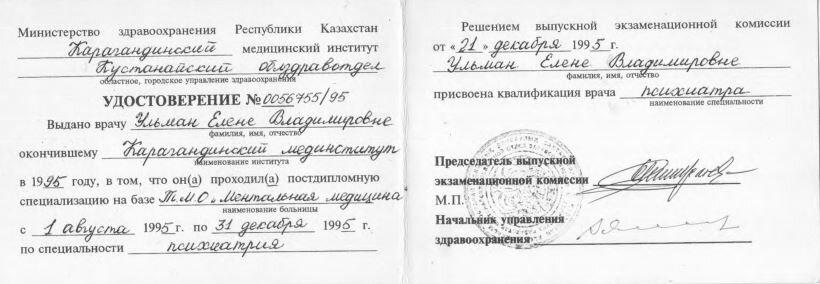 Министерство здравоохранения Республики Казахстан
Карагандинский медицинский институт
Кустанайский облздравотдел
областное, городское управление здравоохранения
УДОСТОВЕРЕНИЕ № 0056755/95
Выдано врачу Ульман Елене Владимировне
фамилия, имя, отчество
окончившему Карагандинский мединститут
наименование института
в 1995 году, в том, что он(а) проходил(а) постдипломную
специализацию на базе Т.М.О „Ментальная медицина"
наименование больницы
с 1 августа 1995 г. по 31 декабря 1995 г.
по специальности психиатрия
Решением выпускной экзаменационной комиссии
от «21» декабря 1995 г.
Ульман Елене Владимировне
фамилия, имя, отчество
присвоена квалификация врача психиатра
наименование специальности
Председатель выпускной
экзаменационной комиссии
М.П.
Начальник управления
здравоохранения